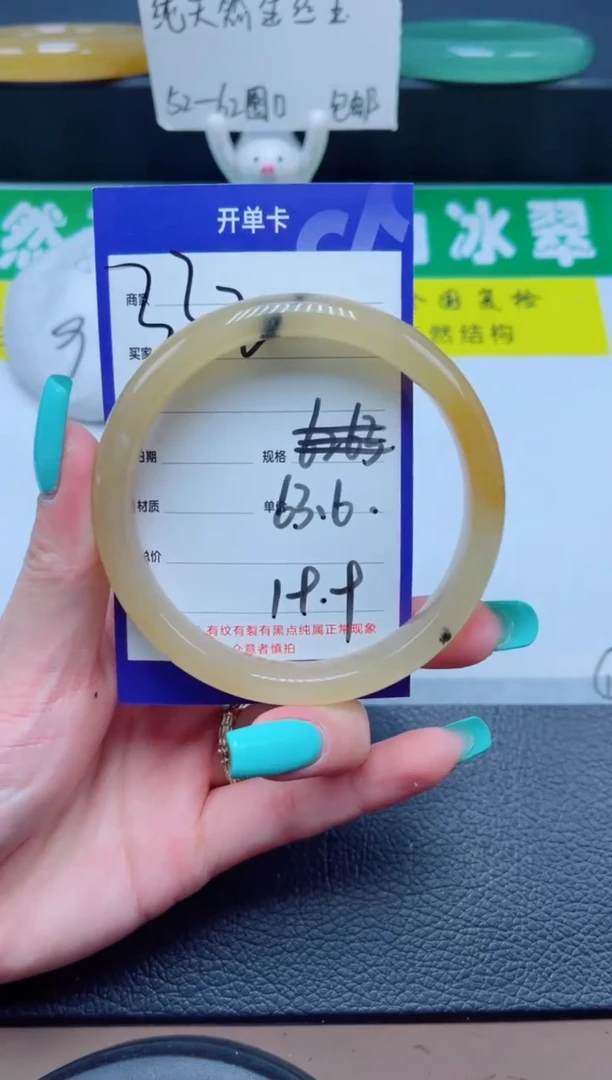 纯天然金丝玉
52-62圈口 包邮
开单卡
然
冰翠
商家
全国复检
然结构
买家
日期 规格
材质 单价 63.6.
总价
有纹有裂有黑点纯属正常现象
介意者慎拍